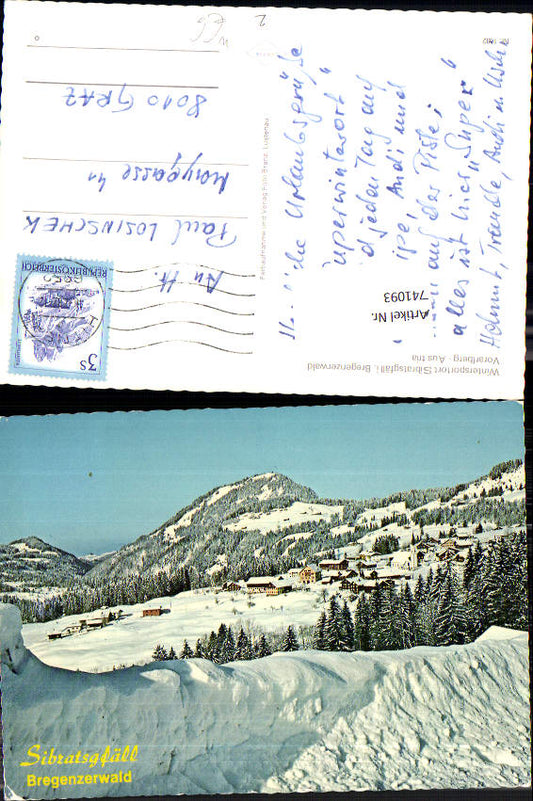 Nr. 1802
Wintersportort Sibratsgfäll, Bregenzerwald
Vorarlberg - Austria
Artikel Nr.
741093
Urlaubsgrüße
jeden Tag auf
Andi und
auf der Piste;
alles ist hier „Super"
Helmut, Traudle, Andi u. Uschi
Farbaufnahme und Verlag Foto Branz, Lustenau
REPUBLIK ÖSTERREICH
3 S
An H.
Paul LOSINSCHEK
8010 GRAZ
Sibratsgfäll
Bregenzerwald